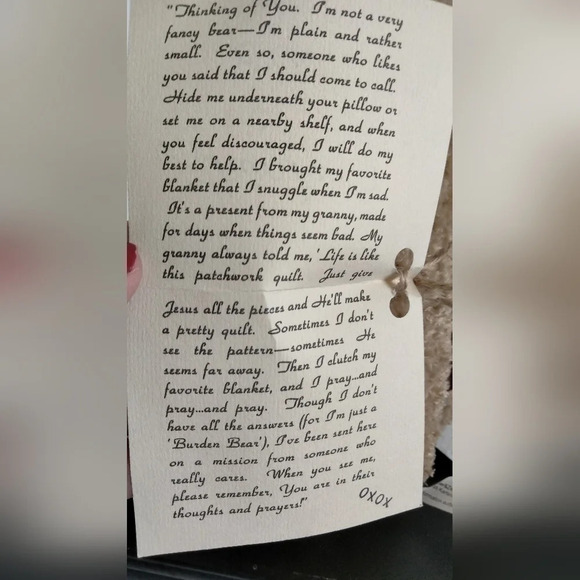 "Thinking of You. I'm not a very
fancy bear—I'm plain and rather
small. Even so, someone who likes
you said that I should come to call.
Hide me underneath your pillow or
set me on a nearby shelf, and when
you feel discouraged, I will do my
best to help. I brought my favorite
blanket that I snuggle when I'm sad.
It's a present from my granny, made
for days when things seem bad. My
granny always told me, 'Life is like
this patchwork quilt. Just give
Jesus all the pieces and He'll make
a pretty quilt. Sometimes I don't
see the pattern—sometimes He
seems far away. Then I clutch my
favorite blanket, and I pray...and
pray...and pray. Though I don't
have all the answers (for I'm just a
'Burden Bear'), I've been sent here
on a mission from someone who
really cares. When you see me,
please remember, You are in their
thoughts and prayers!"
OXOX